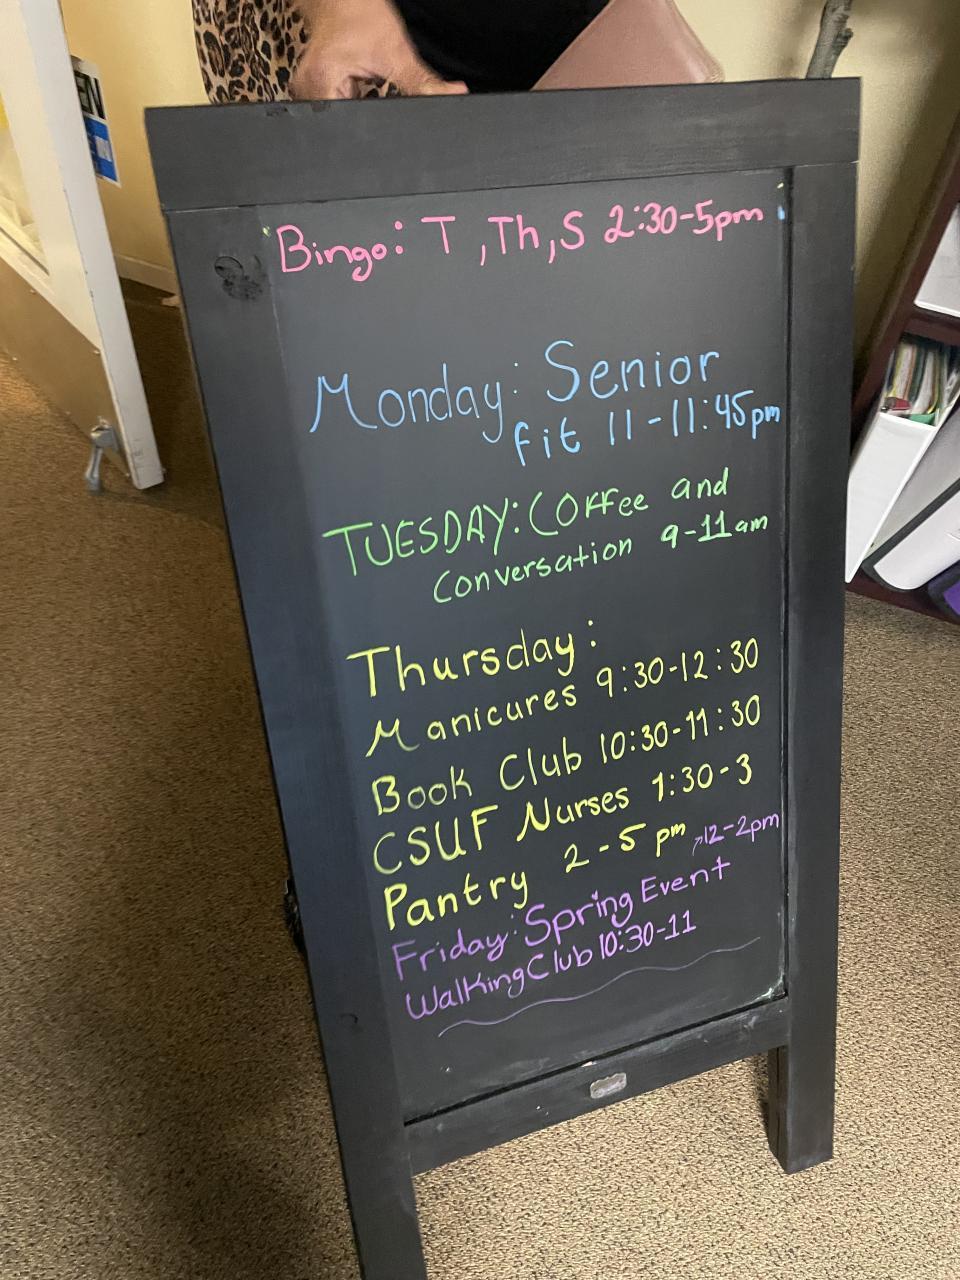 Bingo: T, Th, S 2:30-5pm
Monday: Senior
fit 11-11:45pm
TUESDAY: Coffee and
Conversation 9-11am
Thursday:
Manicures 9:30-12:30
Book Club 10:30-11:30
CSUF Nurses 1:30-3
Pantry 2-5 pm
Friday: Spring Event 12-2pm
Walking Club 10:30-11